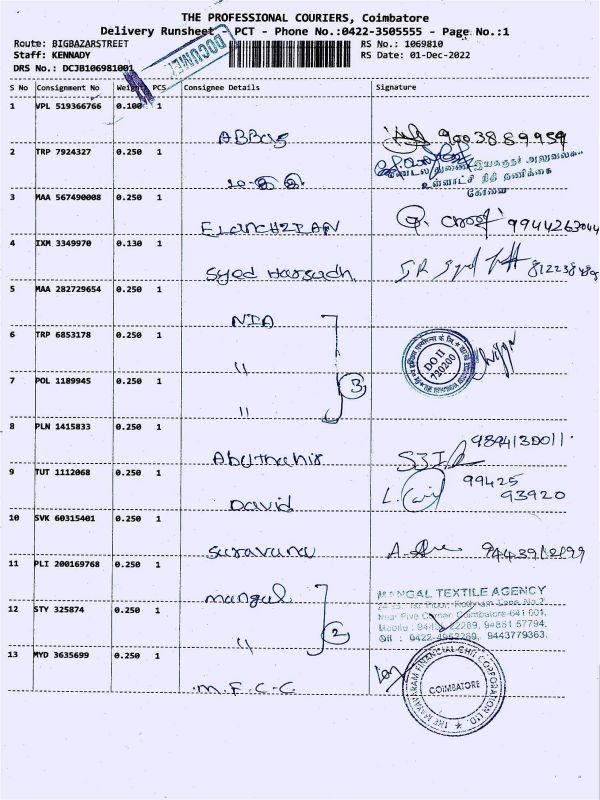 THE PROFESSIONAL COURIERS, Coimbatore
Delivery Runsheet - PCT - Phone No.:0422-3505555 - Page No.:1
Route: BIGBAZARSTREET
RS No.: 1069810
Staff: KENNADY
RS Date: 01-Dec-2022
DRS No.: DCJB106981001
DOCUMENT
S No Consignment No Weight PCS Consignee Details Signature
1 VPL 519366766 0.100 1
ABBas 9003889959
2 TRP 7924327 0.250 1
மண்டல துணை இயக்குநர் அலுவலக
உள்ளாட்சி நிதி தணிக்கை
கோவை
3 MAA 567490008 0.250 1
9944263044
4 IXM 3349970 0.130 1
Syed Harsadh
5 MAA 282729654 0.250 1
NIA
6 TRP 6853178 0.250 1
"
DO II
720200
3
7 POL 1189945 0.250 1
"
8 PLN 1415833 0.250 1
9894130011
Abuthahir
9 TUT 1112068 0.250 1
99425
93920
David
10 SVK 60315401 0.250 1
Saravana
11 PLI 200169768 0.250 1
mangal
MANGAL TEXTILE AGENCY
Near Five Corner, Coimbatore-641 001.
12 STY 325874 0.250 1
"
2
Off : 0422-4952289, 9443779363.
13 MYD 3635699 0.250 1
M.F.C.C
THE MAYAVARAM FINANCIAL CHIT CORPORATION LTD.
COIMBATORE